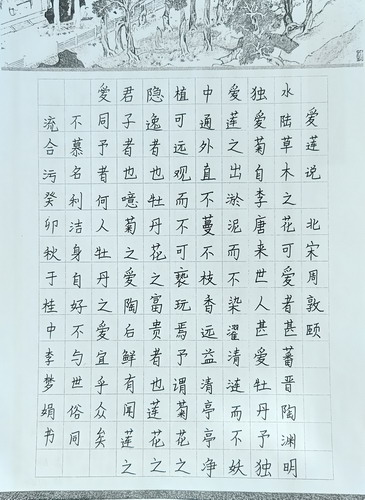 爱莲说 北宋周敦颐
水陆草木之花可爱者甚蕃晋陶渊明
独爱菊自李唐来世人甚爱牡丹予独
爱莲之出淤泥而不染濯清涟而不妖
中通外直不蔓不枝香远益清亭亭净
植可远观而不可亵玩焉予谓菊花之
隐逸者也牡丹花之富贵者也莲花之
君子者也噫菊之爱陶后鲜有闻莲之
爱同予者何人牡丹之爱宜乎众矣
不慕名利洁身自好不与世俗同
流合污癸卯秋于桂中李梦娟书